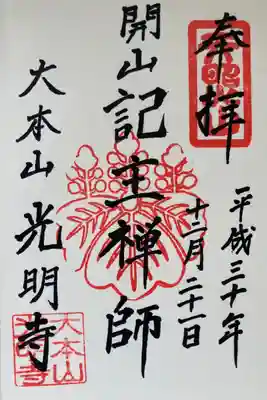 奉拝
平成三十年
十一月二十一日
開山記主禅師
大本山光明寺
大本山
光明寺